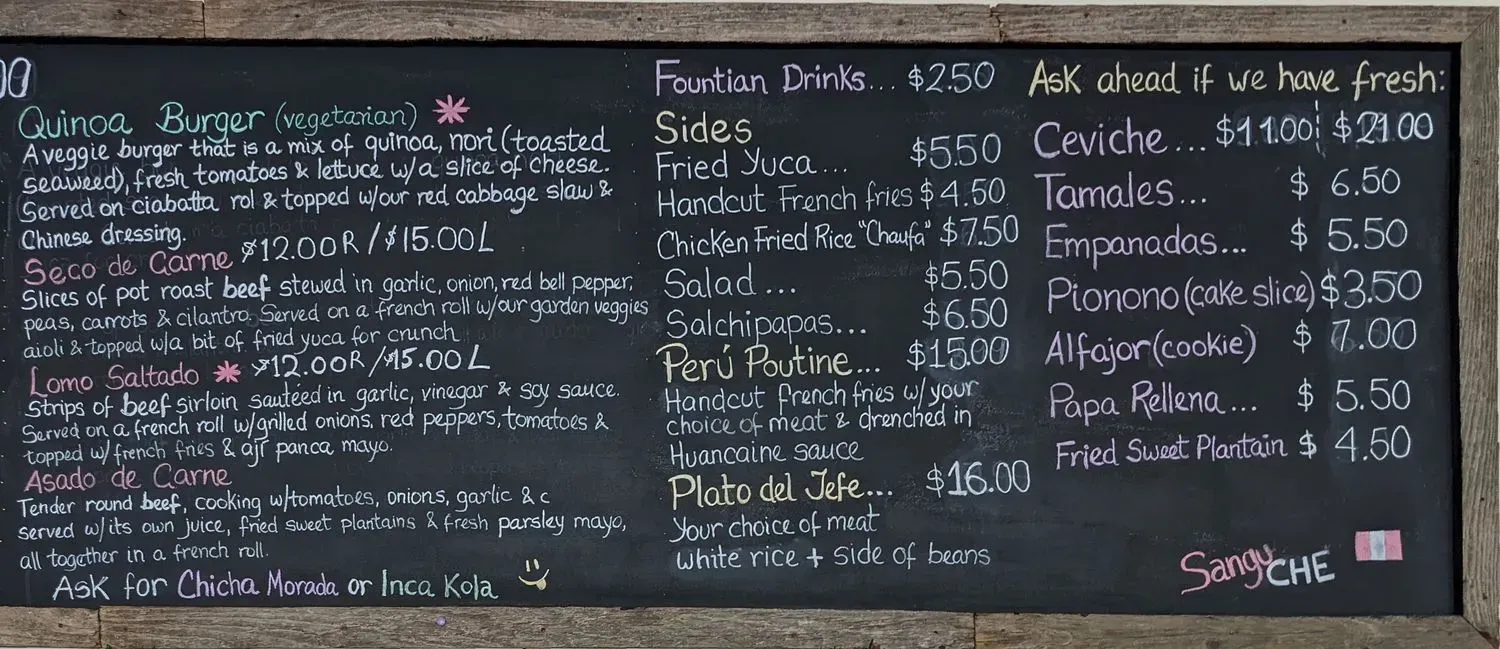 00
Quinoa Burger (vegetarian) *
A veggie burger that is a mix of quinoa, nori (toasted
seaweed), fresh tomatoes & lettuce w/a slice of cheese.
Served on ciabatta rol & topped w/our red cabbage slaw &
Chinese dressing.
Seco de Carne $12.00R / $15.00L
Slices of pot roast beef stewed in garlic, onion, red bell pepper,
peas, carrots & cilantro. Served on a french roll w/our garden veggies
aioli & topped w/a bit of fried yuca for crunch
Lomo Saltado * $12.00R / $15.00L
Strips of beef sirloin sautéed in garlic, vinegar & soy sauce.
Served on a french roll w/grilled onions, red peppers, tomatoes &
topped w/ french fries & ají panca mayo.
Asado de Carne
Tender round beef, cooking w/tomatoes, onions, garlic & c
served w/its own juice, fried sweet plantains & fresh parsley mayo,
all together in a french roll.
Ask for Chicha Morada or Inca Kola
Fountian Drinks... $2.50
Sides
Fried Yuca... $5.50
Handcut French fries $4.50
Chicken Fried Rice "Chaufa" $7.50
Salad... $5.50
Salchipapas... $6.50
Perú Poutine... $15.00
Handcut French fries w/your
choice of meat & drenched in
Huancaine sauce
Plato del Jefe... $16.00
Your choice of meat
white rice + side of beans
Ask ahead if we have fresh:
Ceviche... $11.00 $21.00
Tamales... $6.50
Empanadas... $5.50
Pionono (cake slice) $3.50
Alfajor (cookie) $7.00
Papa Rellena... $5.50
Fried Sweet Plantain $4.50
SanguCHE